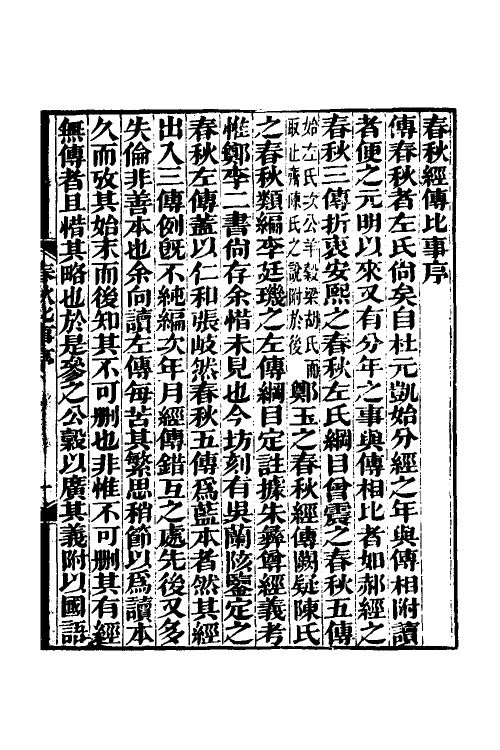 春秋經傳比事序
傳春秋者左氏尙矣自杜元凱始分經之年與傳相附讀
者便之元明以來又有分年之事與傳相比者如郝經之
春秋三傳折衷安熙之春秋左氏綱目曾震之春秋五傳
始左氏次公羊穀梁胡氏而
取止齊陳氏之說附於後
鄭玉之春秋經傳闕疑陳氏
之春秋類編李廷璣之左傳綱目定註據朱彝尊經義考
惟鄭李二書尙存余惜未見也今坊刻有吳蘭陔鑒定之
春秋左傳蓋以仁和張岐然春秋五傳爲藍本者然其經
出入三傳例旣不純編次年月經傳錯互之處先後又多
失倫非善本也余向讀左傳每苦其繁思稍節以爲讀本
久而攷其始末而後知其不可刪也非惟不可刪其有經
無傳者且惜其略也於是參之公穀以廣其義附以國語
春秋比事序
一